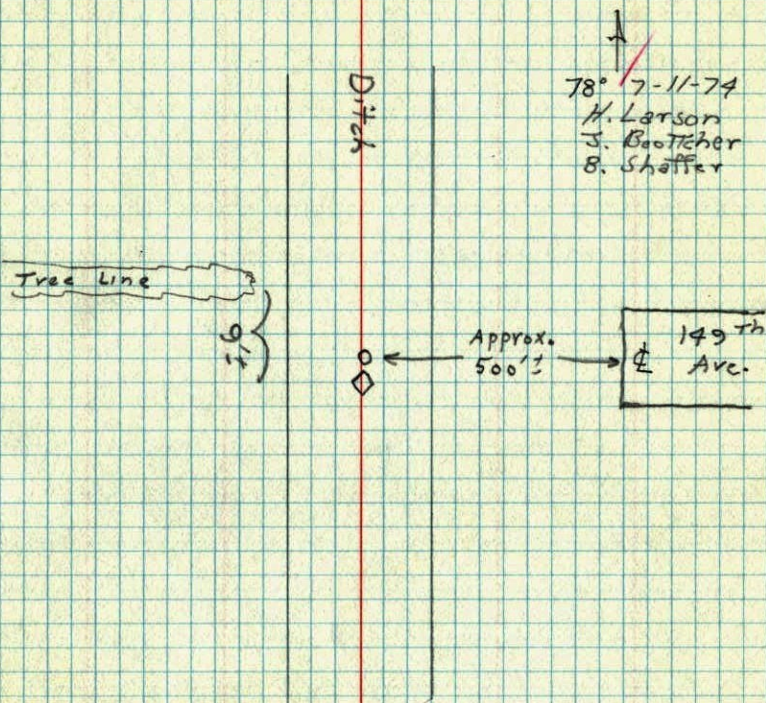 Ditch
78° 7-11-74
H. Larson
J. Boettcher
B. Shaffer
Tree Line
Approx.
500'±
149th
℄ Ave.